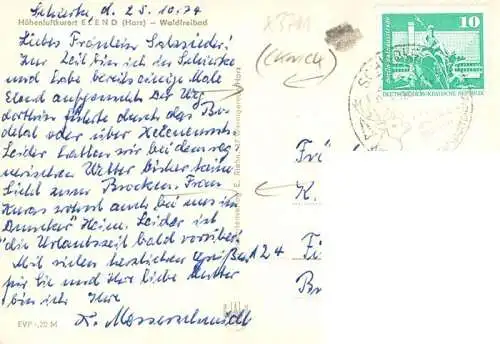 Schierke, d. 25.10.74
Höhenluftkurort ELEND (Harz) — Waldfreibad
Liebes Fräulein
Zur Zeit bin ich in Schierke
und habe bereits einige Male
Elend aufgesucht. Der Weg
dorthin führte durch das Bo-
detal oder über
Leider hatten wir bei dem reg-
nerischen Wetter bisher kein
Sicht zum Brocken. Frau
wohnt auch bei uns im
Heim. Leider ist
die Urlaubszeit bald vorüber!
Mit vielen herzlichen Grüßen
für Sie und Ihre liebe Mutter
bin ich Ihre
K. Messerschmidt
EVP -,20 M
10
DEUTSCHE DEMOKRATISCHE REPUBLIK
Frä
K.
124
Fi
Br